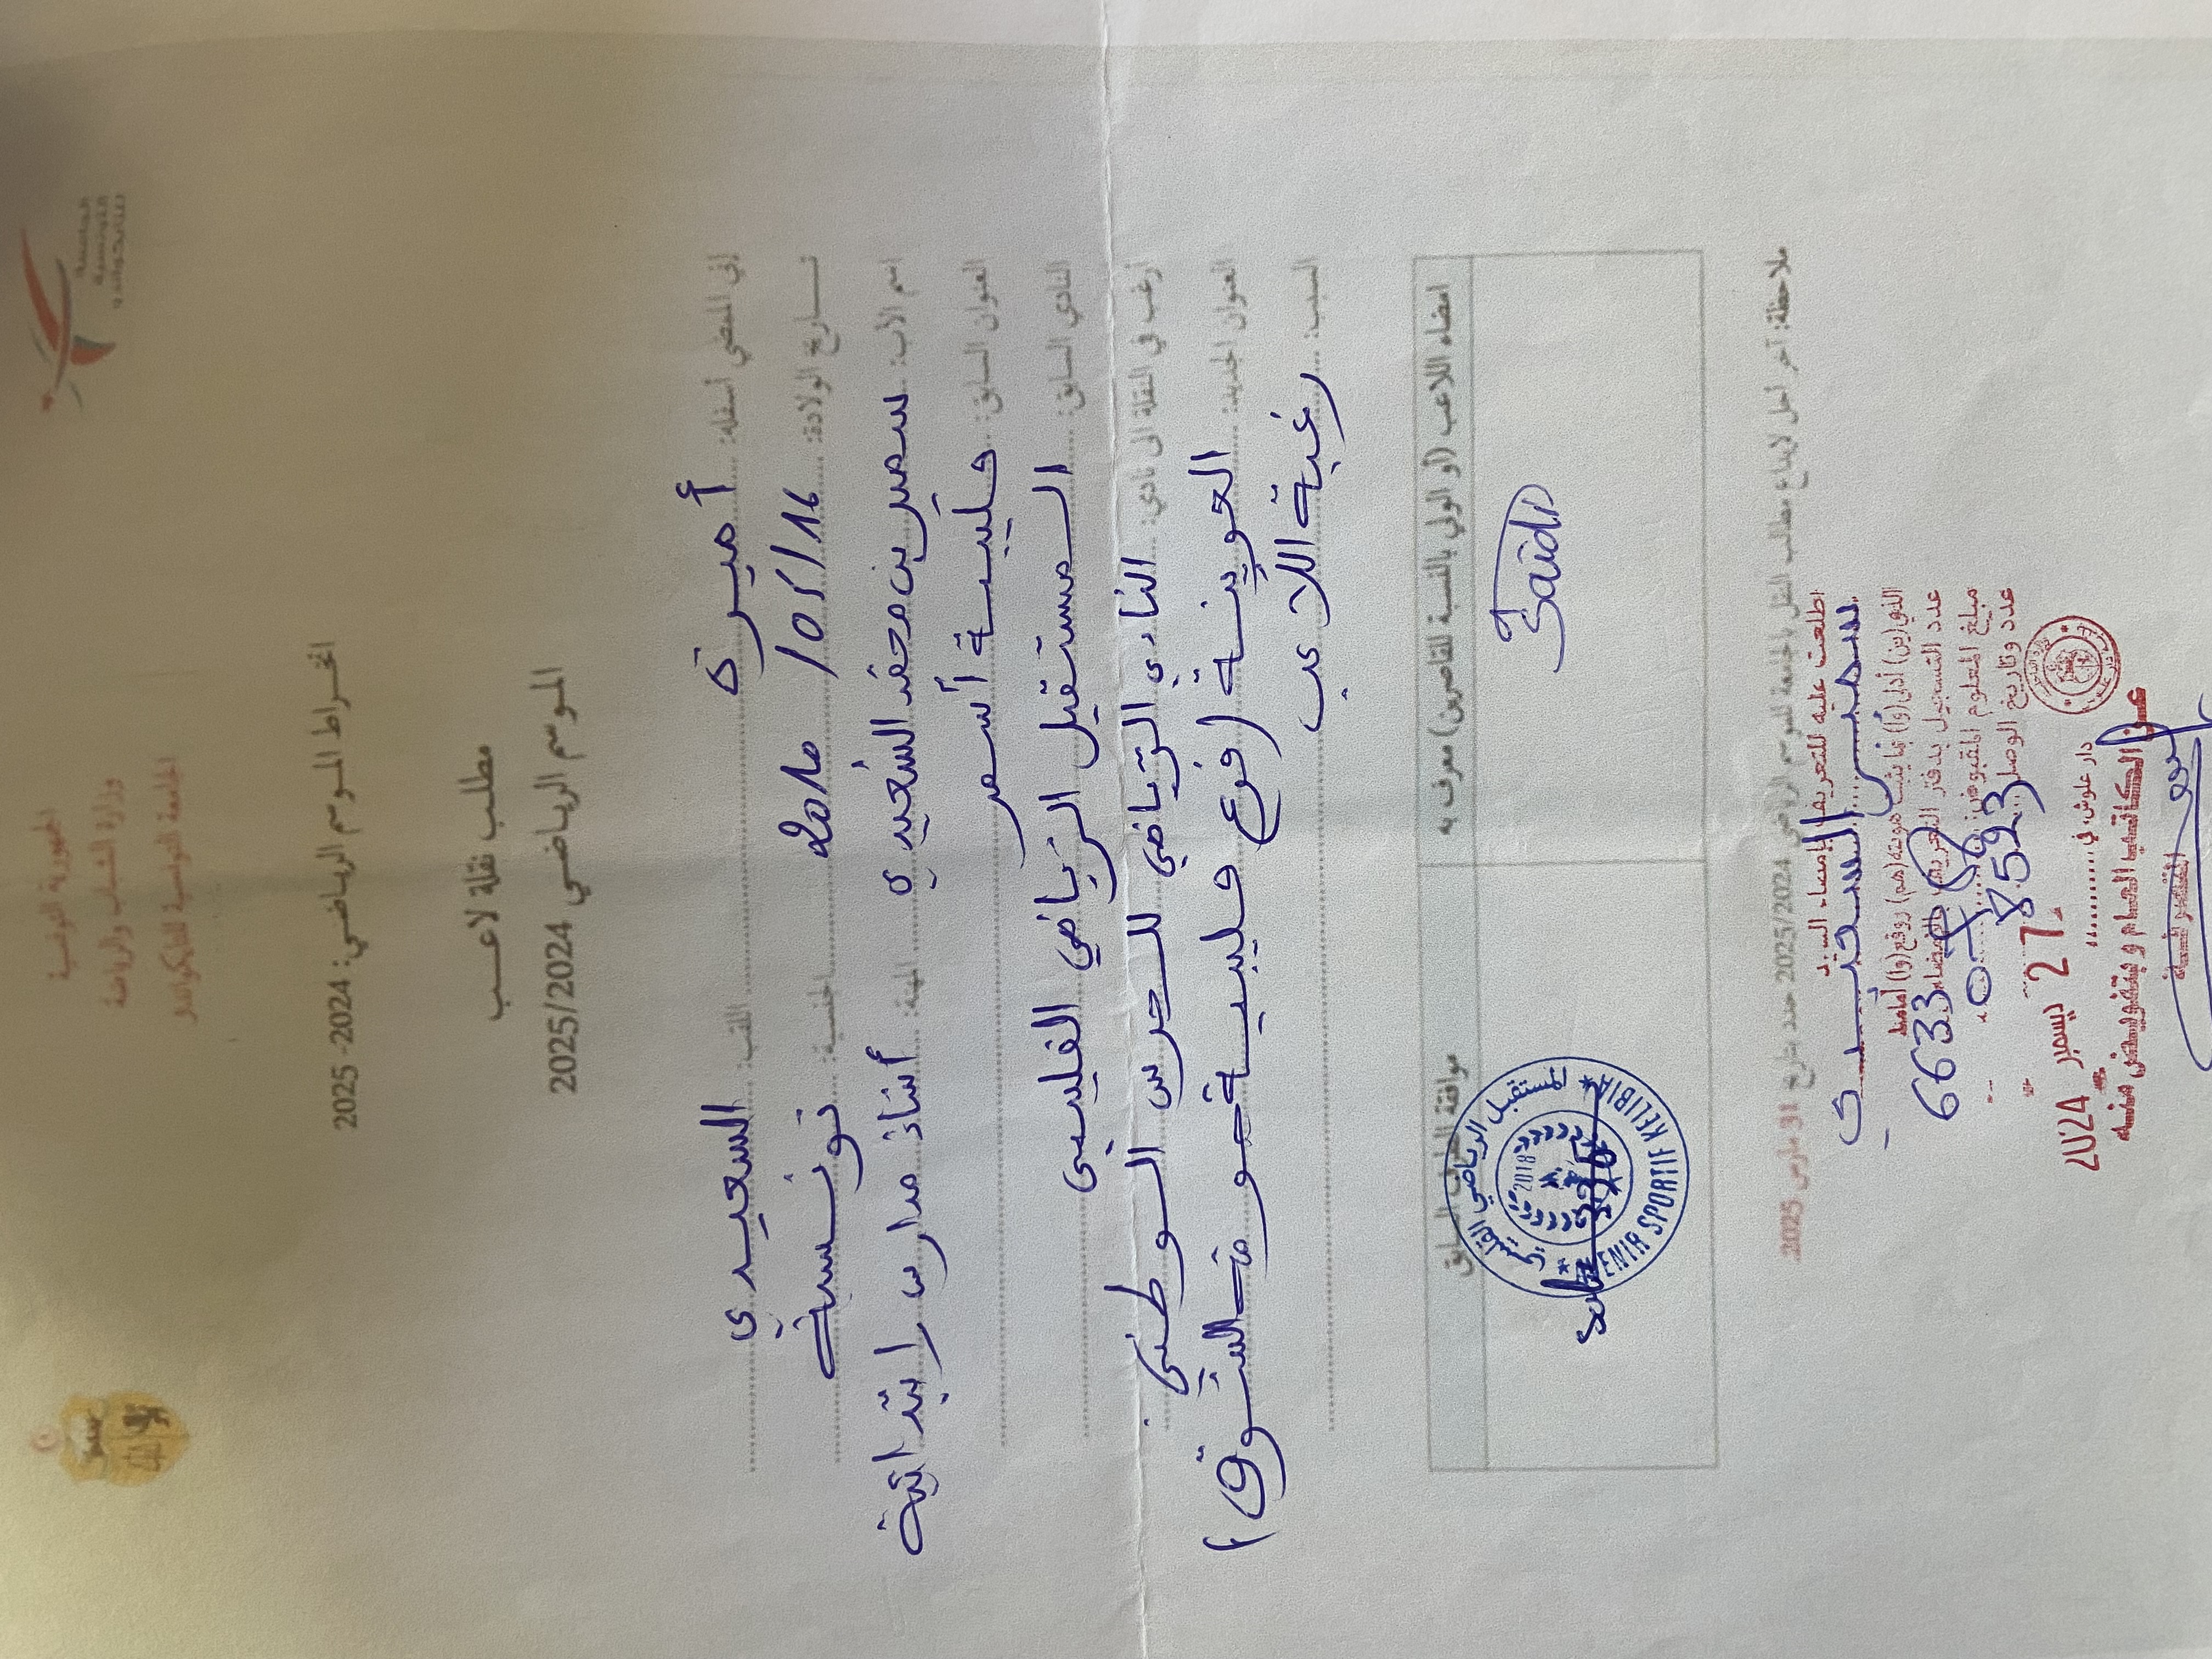 الجمهورية التونسية
وزارة الشباب والرياضة
الجامعة التونسية للتايكواندو
الجامعة
التونسية
للتايكواندو
انخراط الموسم الرياضي: 2024- 2025
مطلب نقلة لاعب
الموسم الرياضي 2025/2024
إني الممضي أسفله: أميرة اللقب: السعيدي
تاريخ الولادة: 16/05/2010 الجنسية: تونسية
اسم الأب: سمير بن محمد السعيدي المهنة: أستاذ مدارس ابتدائية
العنوان السابق: قليبية
النادي السابق: المستقبل الرياضي القليبي
أرغب في النقلة الى نادي: النادي الرياضي للحرس الوطني
العنوان الجديد: العوينة (فرع قليبية حومة السوق)
السبب: رغبة اللاعب
امضاء اللاعب (أو الولي بالنسبة للقاصرين) معرف به
موافقة السابق
Saidi
المستقبل الرياضي القليبي
2018
AVENIR SPORTIF KELIBIA
ملاحظة: آخر أجل لإيداع مطالب النقل بالجامعة للموسم الرياضي 2025/2024 حدد بتاريخ 31 مارس 2025
اطلعت عليه للتعريف بإمضاء السيد
سمير السعيدي
عدد التسجيل بدفتر التعريف بالإمضاء 6633
مبلغ المعلوم المقبوض:
عدد وتاريخ الوصل 78523
دار علوش في 27 ديسمبر 2024
عن الكاتب العام و بتفويض منه